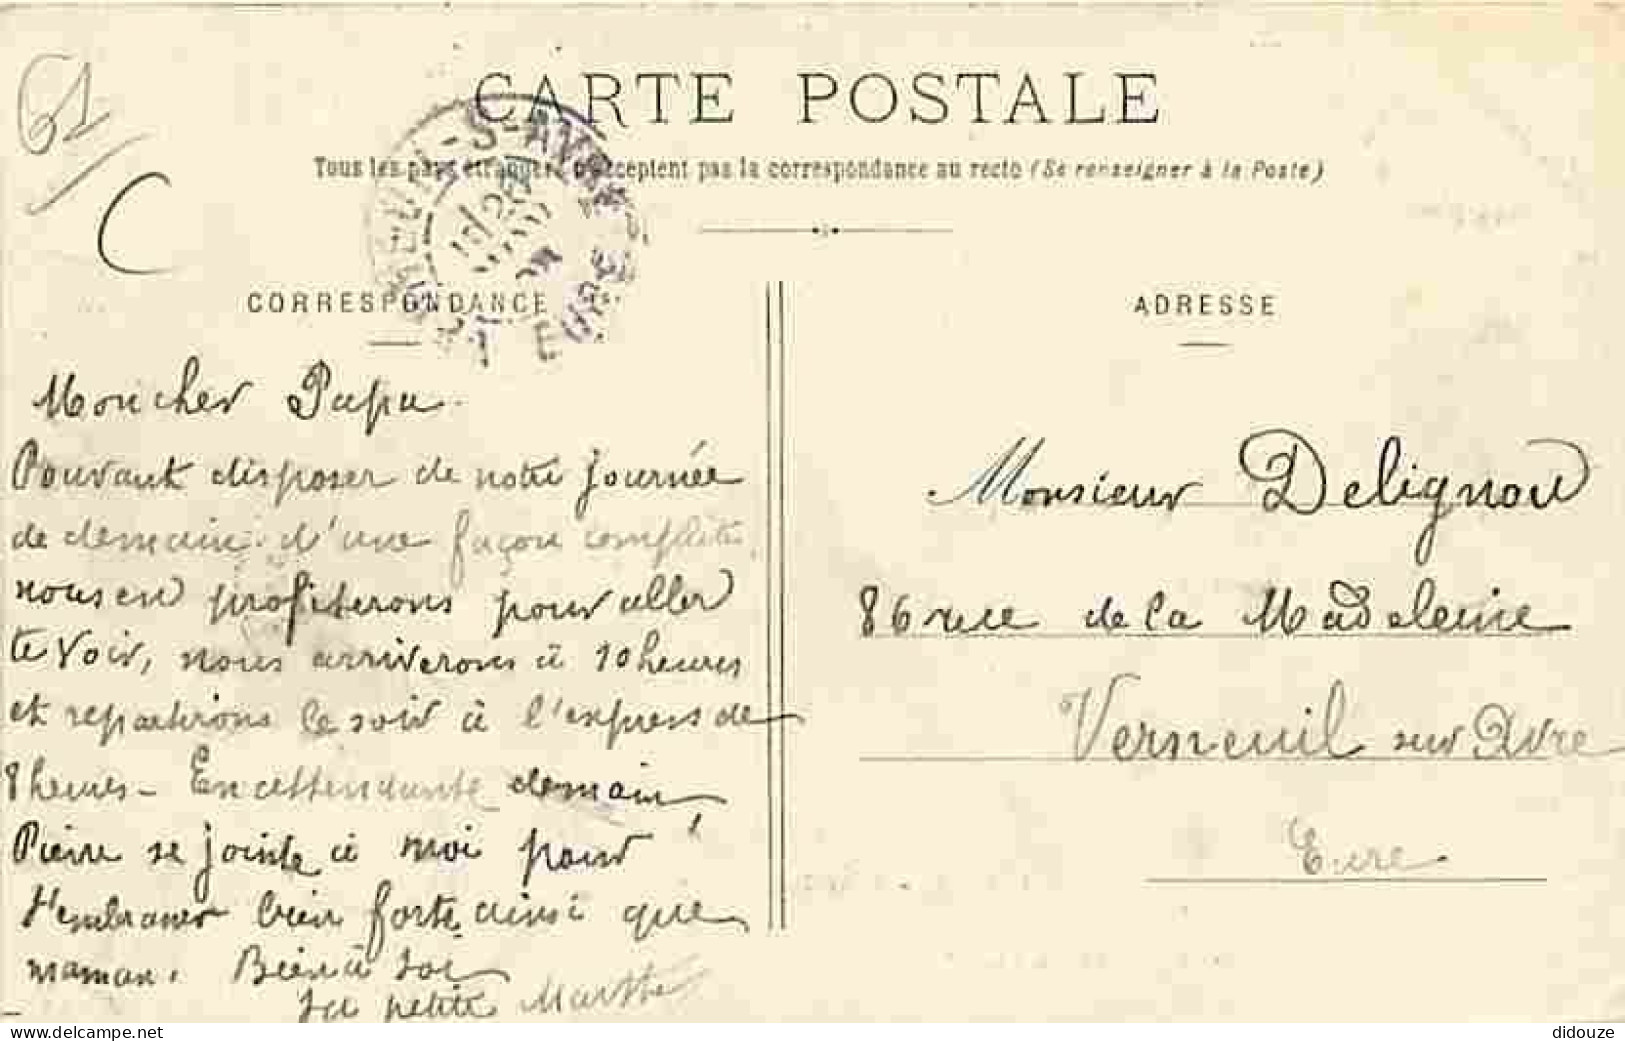 61
C
CARTE POSTALE
Tous les pays étrangers n'acceptent pas la correspondance au recto (Se renseigner à la Poste)
VERNEUIL-S-AVRE
EURE
CORRESPONDANCE
ADRESSE
Mon cher Papa.
Pouvant disposer de notre journée
de demain d'une façon complète,
nous en profiterons pour aller
te voir, nous arriverons à 10 heures
et repartirons le soir à l'express de
8 heures - En attendant demain
Pierre se joint à moi pour
t'embrasser bien fort ainsi que
maman. Bien à toi
Ta petite Marthe
Monsieur Delignou
86 rue de la Madeleine
Verneuil sur Avre
Eure
delcampe.net
didouze